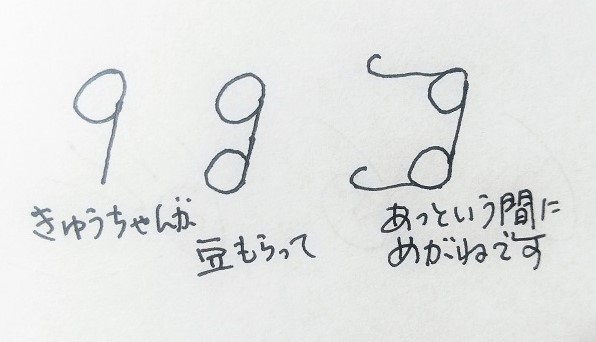 9
きゅうちゃんが
豆もらって
あっという間に
めがねです